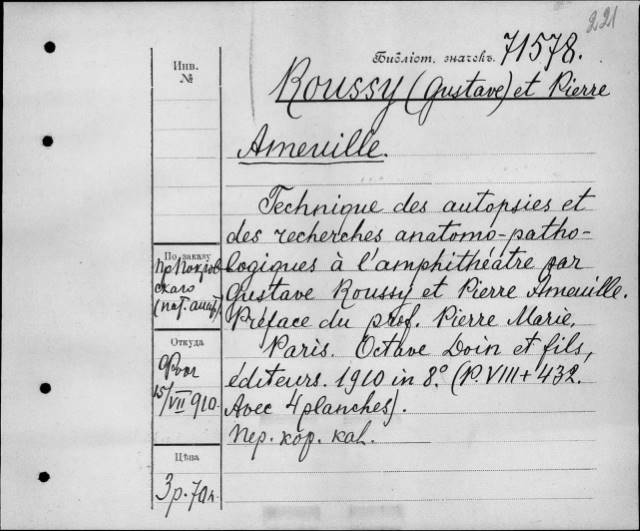 221
Библіот. значекъ. 71578.
Инв.
№
Roussy (Gustave) et Pierre
Ameuille.
Technique des autopsies et
des recherches anatomo-patho-
logiques à l'amphithéatre par
Gustave Roussy et Pierre Ameuille.
Préface du prof. Pierre Marie,
Paris. Octave Doin et fils,
éditeurs. 1910 in 8.° (P. VIII + 432.
Avec 4 planches).
Пер. кор. кал.
По заказу
пр. Покров
скаго
Откуда
15/VII 910.
Цѣна
3 р. 70 к.